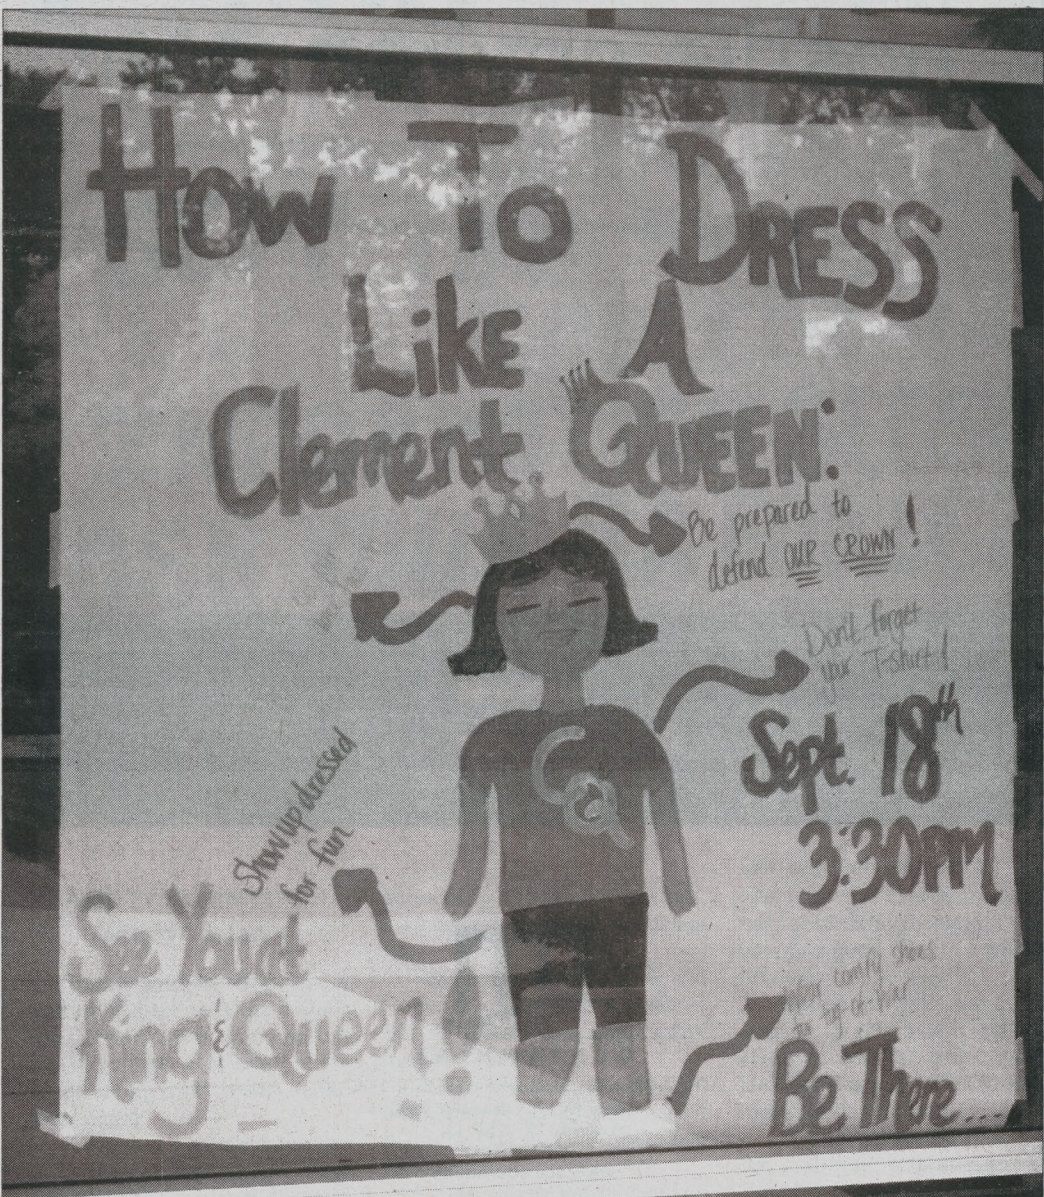 How To DRESS
Like A
Clement QUEEN:
Be prepared to
defend OUR CROWN!
Don't forget
your T-shirt!
Sept. 18th
3:30PM
CQ
Show up dressed
for fun
See You at
King & Queen!
Wear comfy shoes
for tug-of-war
Be There....